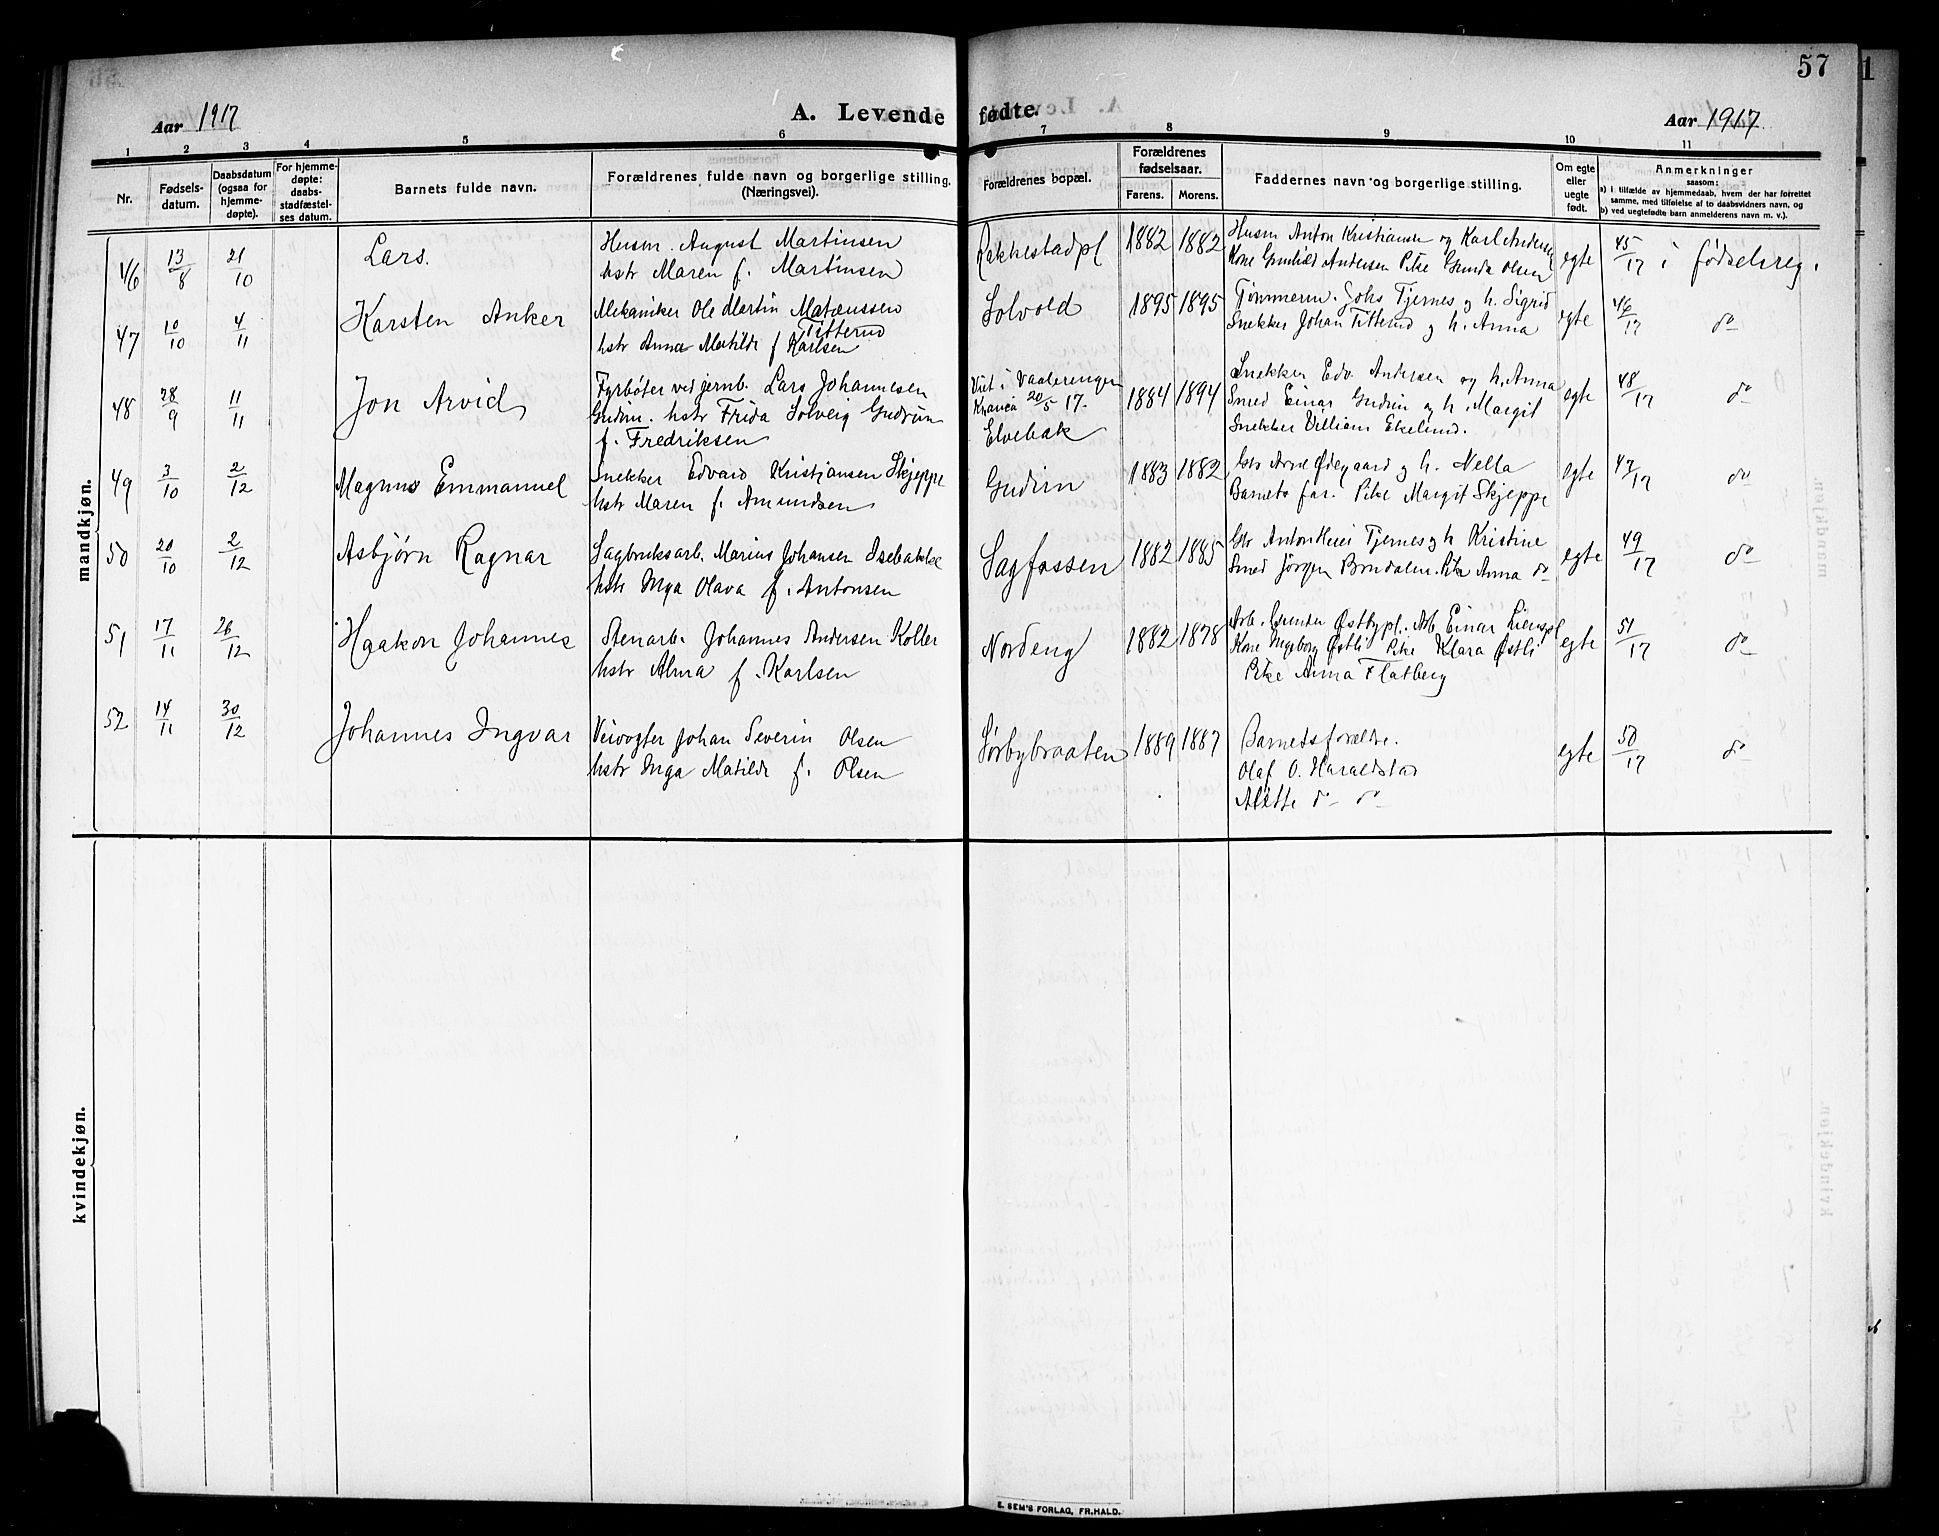 57
Aar 1917
A. Levende fødte.
Aar 1917.
1 2 3 4 5 6 7 8 9 10 11
Nr.
Fødsels-
datum.
Daabsdatum
(ogsaa for
hjemme-
døpte).
For hjemme-
døpte:
daabs-
stadfæstel-
ses datum.
Barnets fulde navn.
Forældrenes fulde navn og borgerlige stilling.
(Næringsvei).
Forældrenes bopæl.
Forældrenes
fødselsaar.
Farens. Morens.
Faddernes navn og borgerlige stilling.
Om egte
eller
uegte
født.
Anmerkninger
saasom:
a) i tilfælde av hjemmedaab, hvem der har forrettet
samme, med tilføielse af to daabsvidners navn, og
b) ved uegtefødte barn anmelderens navn m. v.).
mandkjøn.
46 13/8 21/10 Lars.
Husm. August Martinsen
hstr Maren f. Martinsen
Rakkestadpl 1882 1882
Husm Anton Kristiansen og Karl Andersen
Kone Gunhild Andersen Pike Gunda Olsen
egte 45/17 i fødselsreg.
47 10/10 4/11 Karsten Anker
Mekaniker Ole Martin Matæussen
Titterud
hstr Anna Matilde f Karlsen
Solvold 1895 1895
Tømmerm. Johs Tjernes og h. Sigrid
Snekker Johan Titterud og h. Anna
egte 46/17 do
48 28/9 11/11 Jon Arvid
Fyrbøter ved jernb. Lars Johannesen
Gudim. hstr Frida Solveig Gudrun
f. Fredriksen
Viet i Vaalerengen
20/5 17.
Elvebak
1884 1894
Snekker Edv. Andersen og h. Anna
Smed Einar Gudim og h. Margit
Snekker Villiam Ekelund.
egte 48/17 do
49 3/10 2/12 Magnus Emmanuel
Snekker Edvard Kristjansen Skjeppe
hstr Maren f. Amundsen
Gudim 1883 1882
Gbr Arne Ødegaard og h. Nella
Barnets far. Pike Margit Skjeppe
egte 47/17 do
50 20/10 2/12 Asbjørn Ragnar
Sagbruksarb. Marius Johansen Isebakke
hstr Inga Olava f. Antonsen
Sagfossen 1882 1885
Gbr Anton Tjernes og h Kristine
Smed Jørgen Brudalen. Pike Anna do
egte 49/17 do
51 17/11 26/12 Haakon Johannes
Stenarb. Johannes Andersen Koller
hstr Alma f. Karlsen
Nordeng 1882 1878
Arb. Gunder Østbypl. Arb Einar Lienspl
Kone Ingeborg Østli Pike Klara Østli
Pike Anna Flatberg
egte 51/17 do
52 14/11 30/12 Johannes Ingvar
Veivogter Johan Severin Olsen
hstr Inga Matilde f. Olsen
Sørbybraaten 1889 1887
Barnedsforældre.
Olaf O. Haraldstad
Alette do do
egte 50/17 do
kvindekjøn.
E. SEM'S FORLAG, FR.HALD.